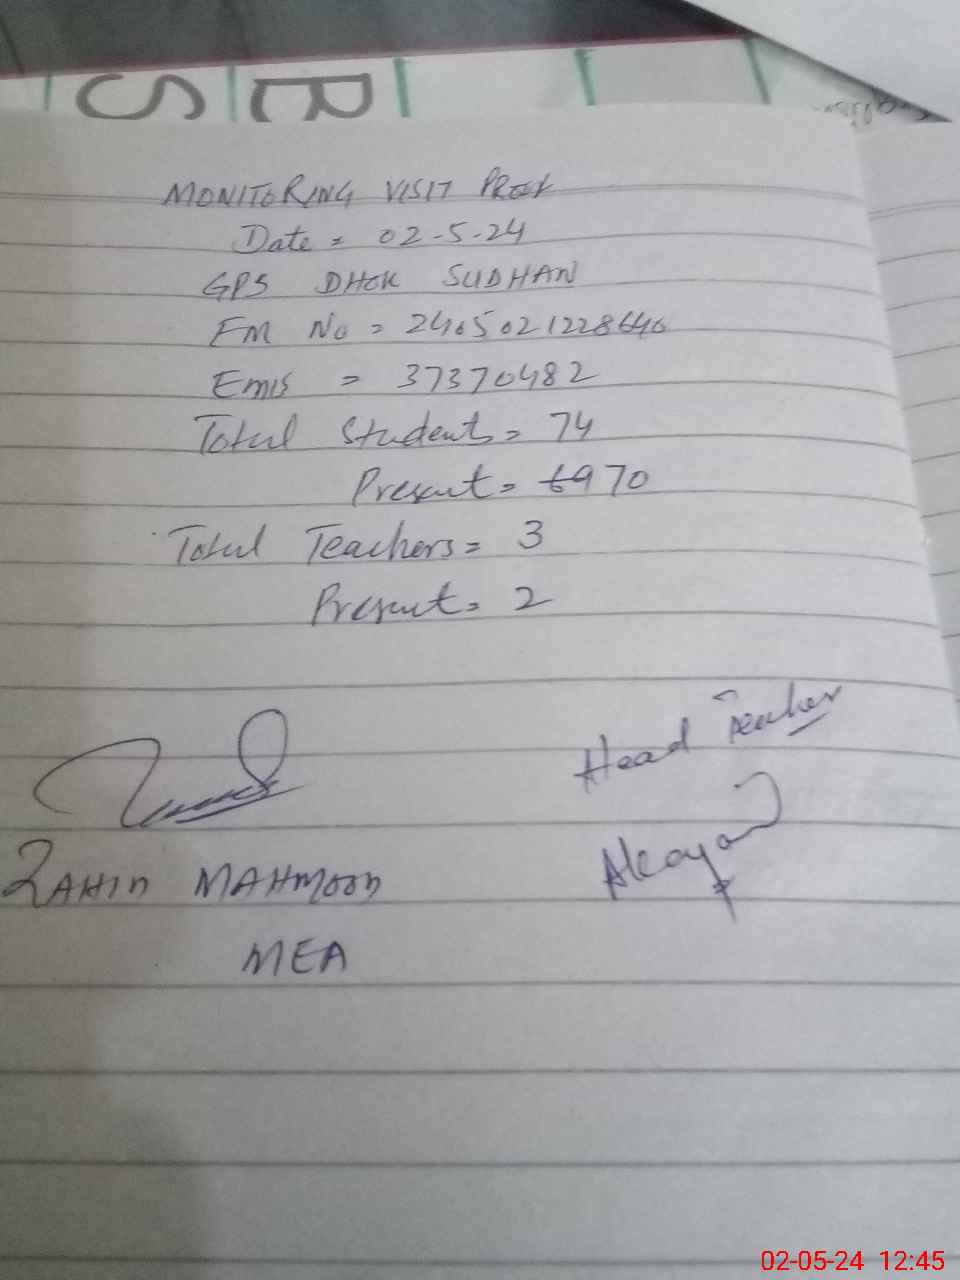 MONITORING VISIT PROOF
Date = 02-5-24
GPS DHOK SUDHAN
FM No = 2405021228646
Emis = 37370482
Total Students = 74
Present = 69 70
Total Teachers = 3
Present = 2
Head Teacher
MAHMOOD
MEA
02-05-24 12:45